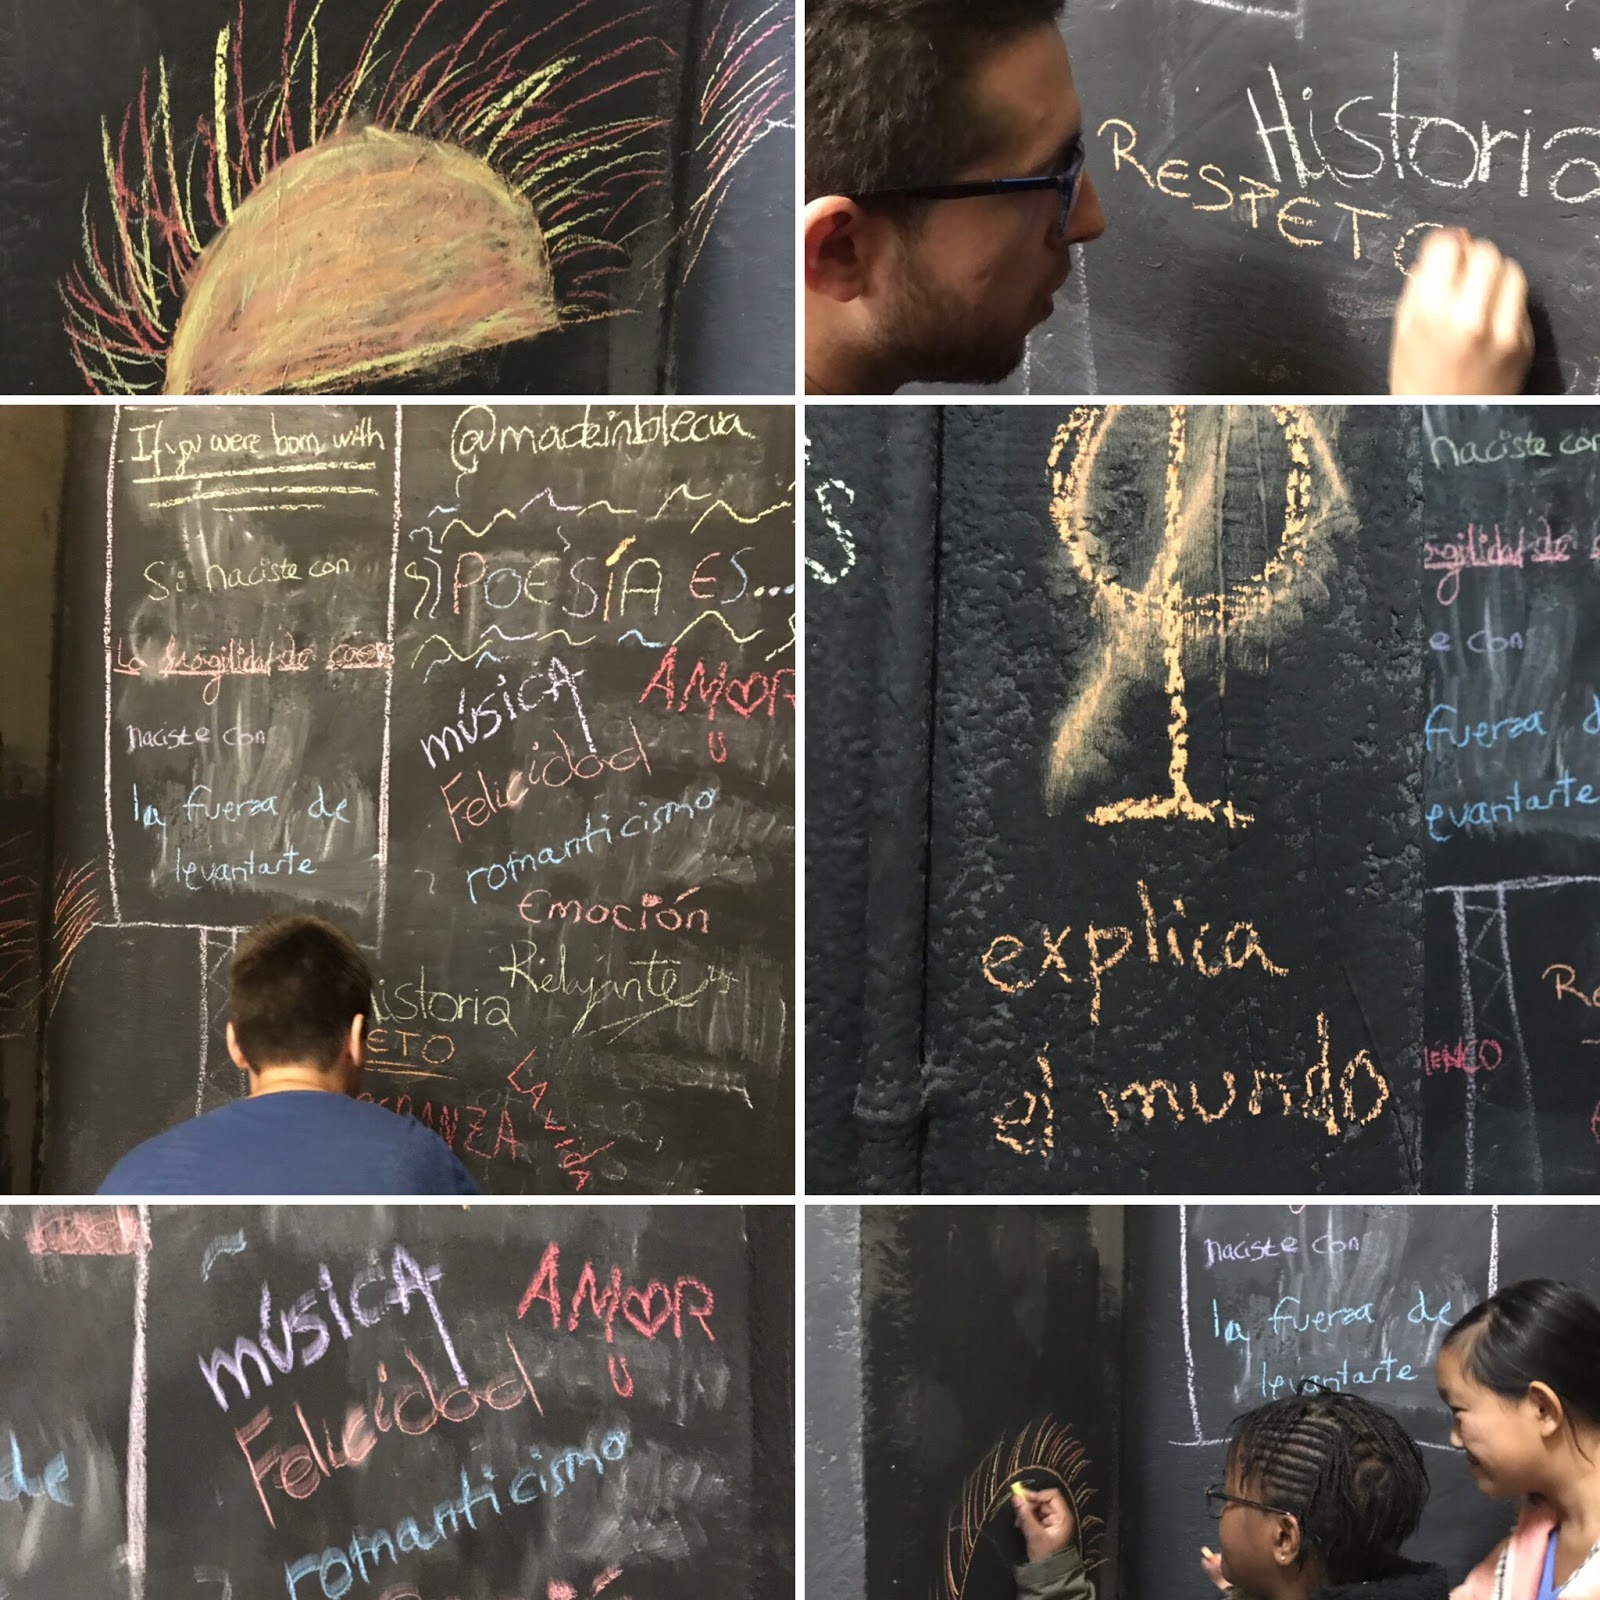 Historia
RESPETO
If you were born with
Si naciste con
La fragilidad de caer
naciste con
la fuerza de
levantarte
@madeinblecua
POESÍA ES...
música
AMOR
Felicidad
romanticismo
Emoción
Relajante
istoria
ETO
ANZA
LA VIDA
S
explica
el mundo
naciste con
agilidad de
e con
fuerza d
evantarte
Re
MENCO
música
AMOR
Felicidad
romanticismo
de
naciste con
la fuerza de
levantarte